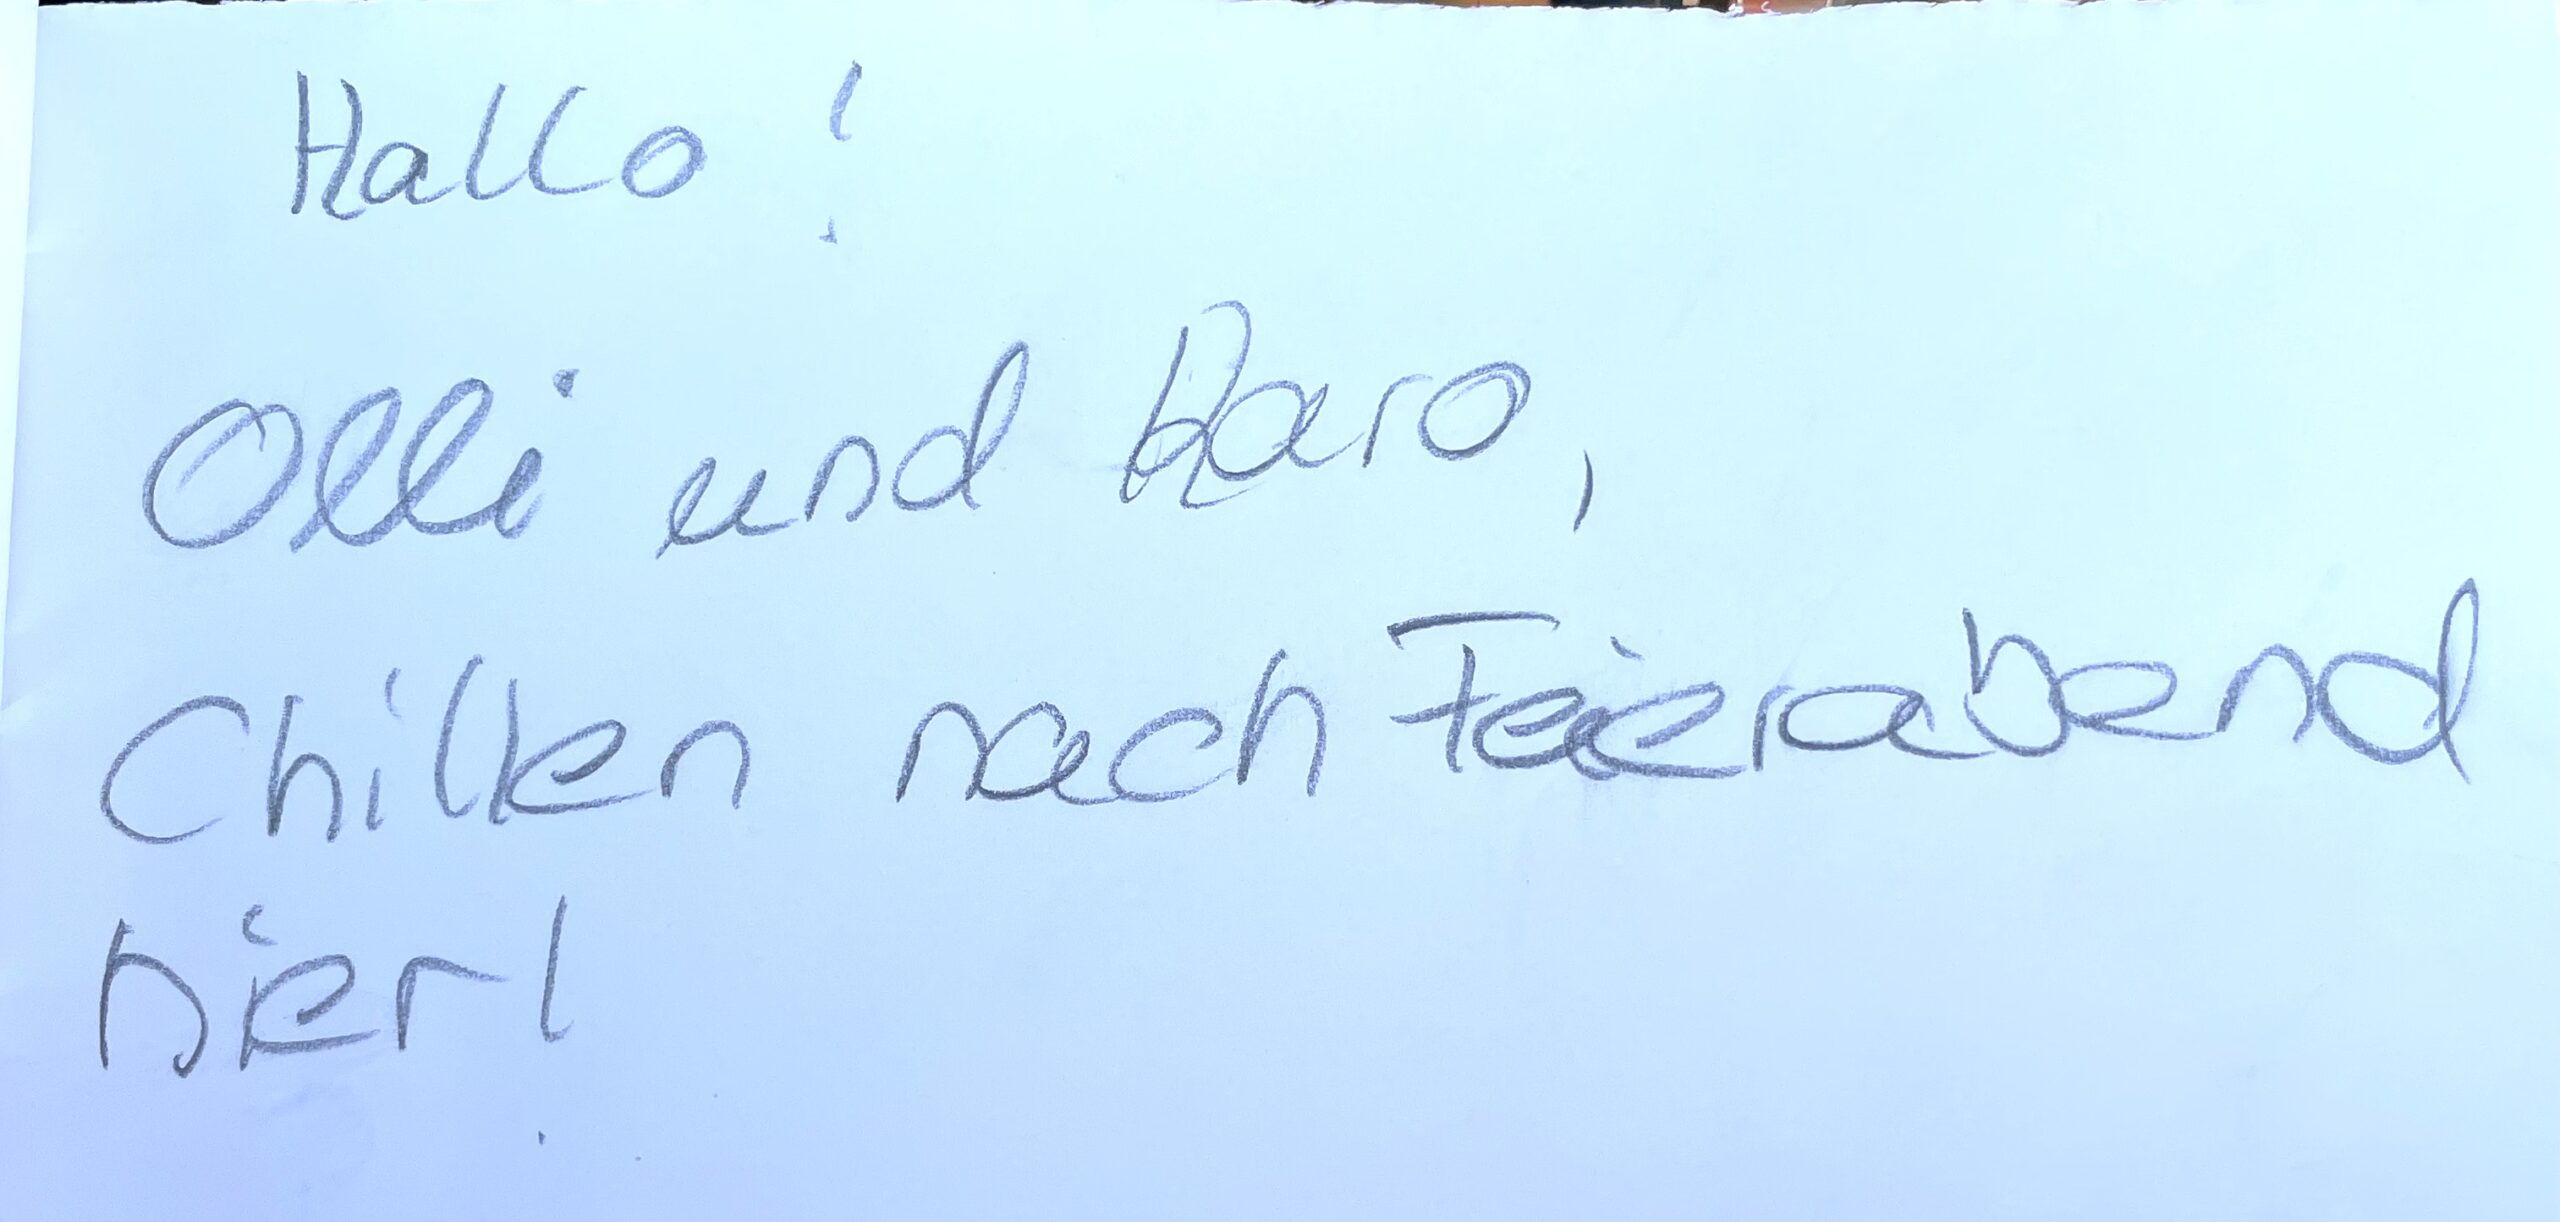 Hallo!
Olli und Karo,
Chillen nach Feierabend
hier!